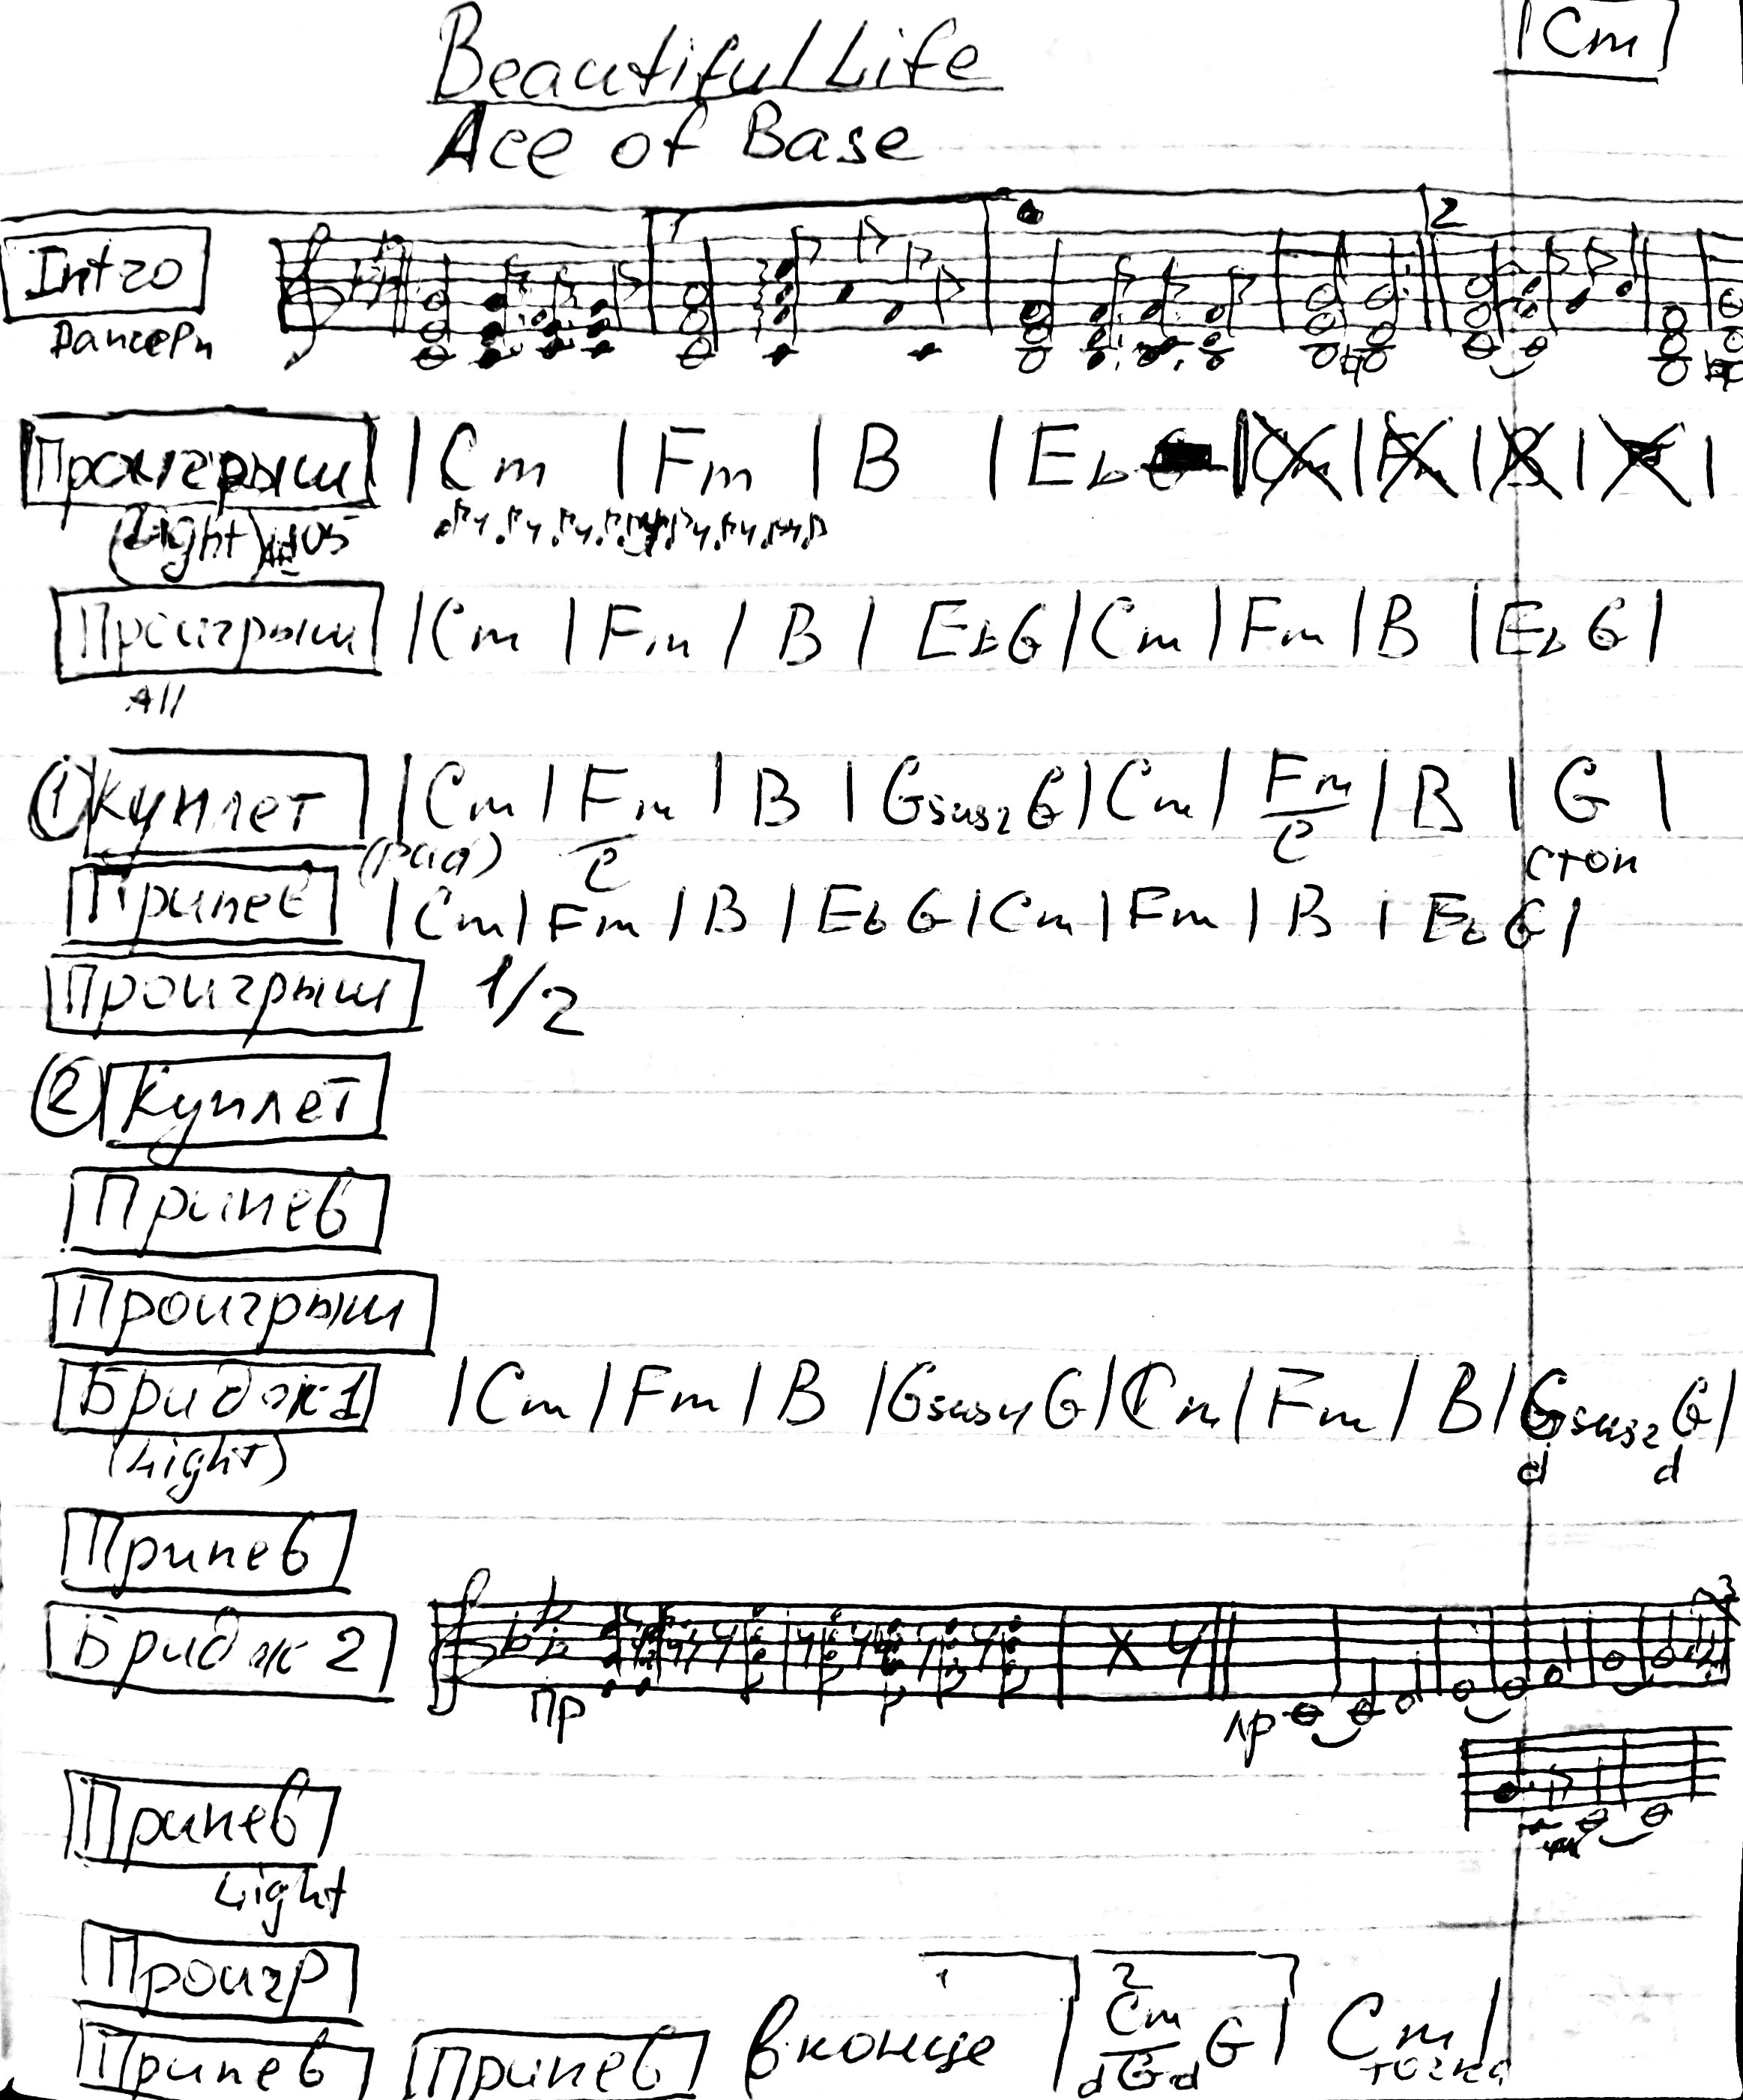 Beautiful Life
|Cm|
Ace of Base
1
2
Intro
Проигрыш |Cm |Fm |B |Eb
(Light)
Проигрыш |Cm |Fm |B |Eb G |Cm |Fm |B |Eb G|
All
① Куплет |Cm |Fm/C |B |Gsus2 G |Cm |Fm/C |B |G |
стоп
Припев |Cm |Fm |B |Eb G |Cm |Fm |B |Eb G|
Проигрыш 1/2
② Куплет
Припев
Проигрыш
Бридж 1 |Cm |Fm |B |Gsus4 G |Cm |Fm |B |Gsus2 G|
(Light)
Припев
Бридж 2
x 4
пр
лр
3
Припев
Light
Проигр
1
2
Припев Припев в конце | Cm/G G | Cm |
точка